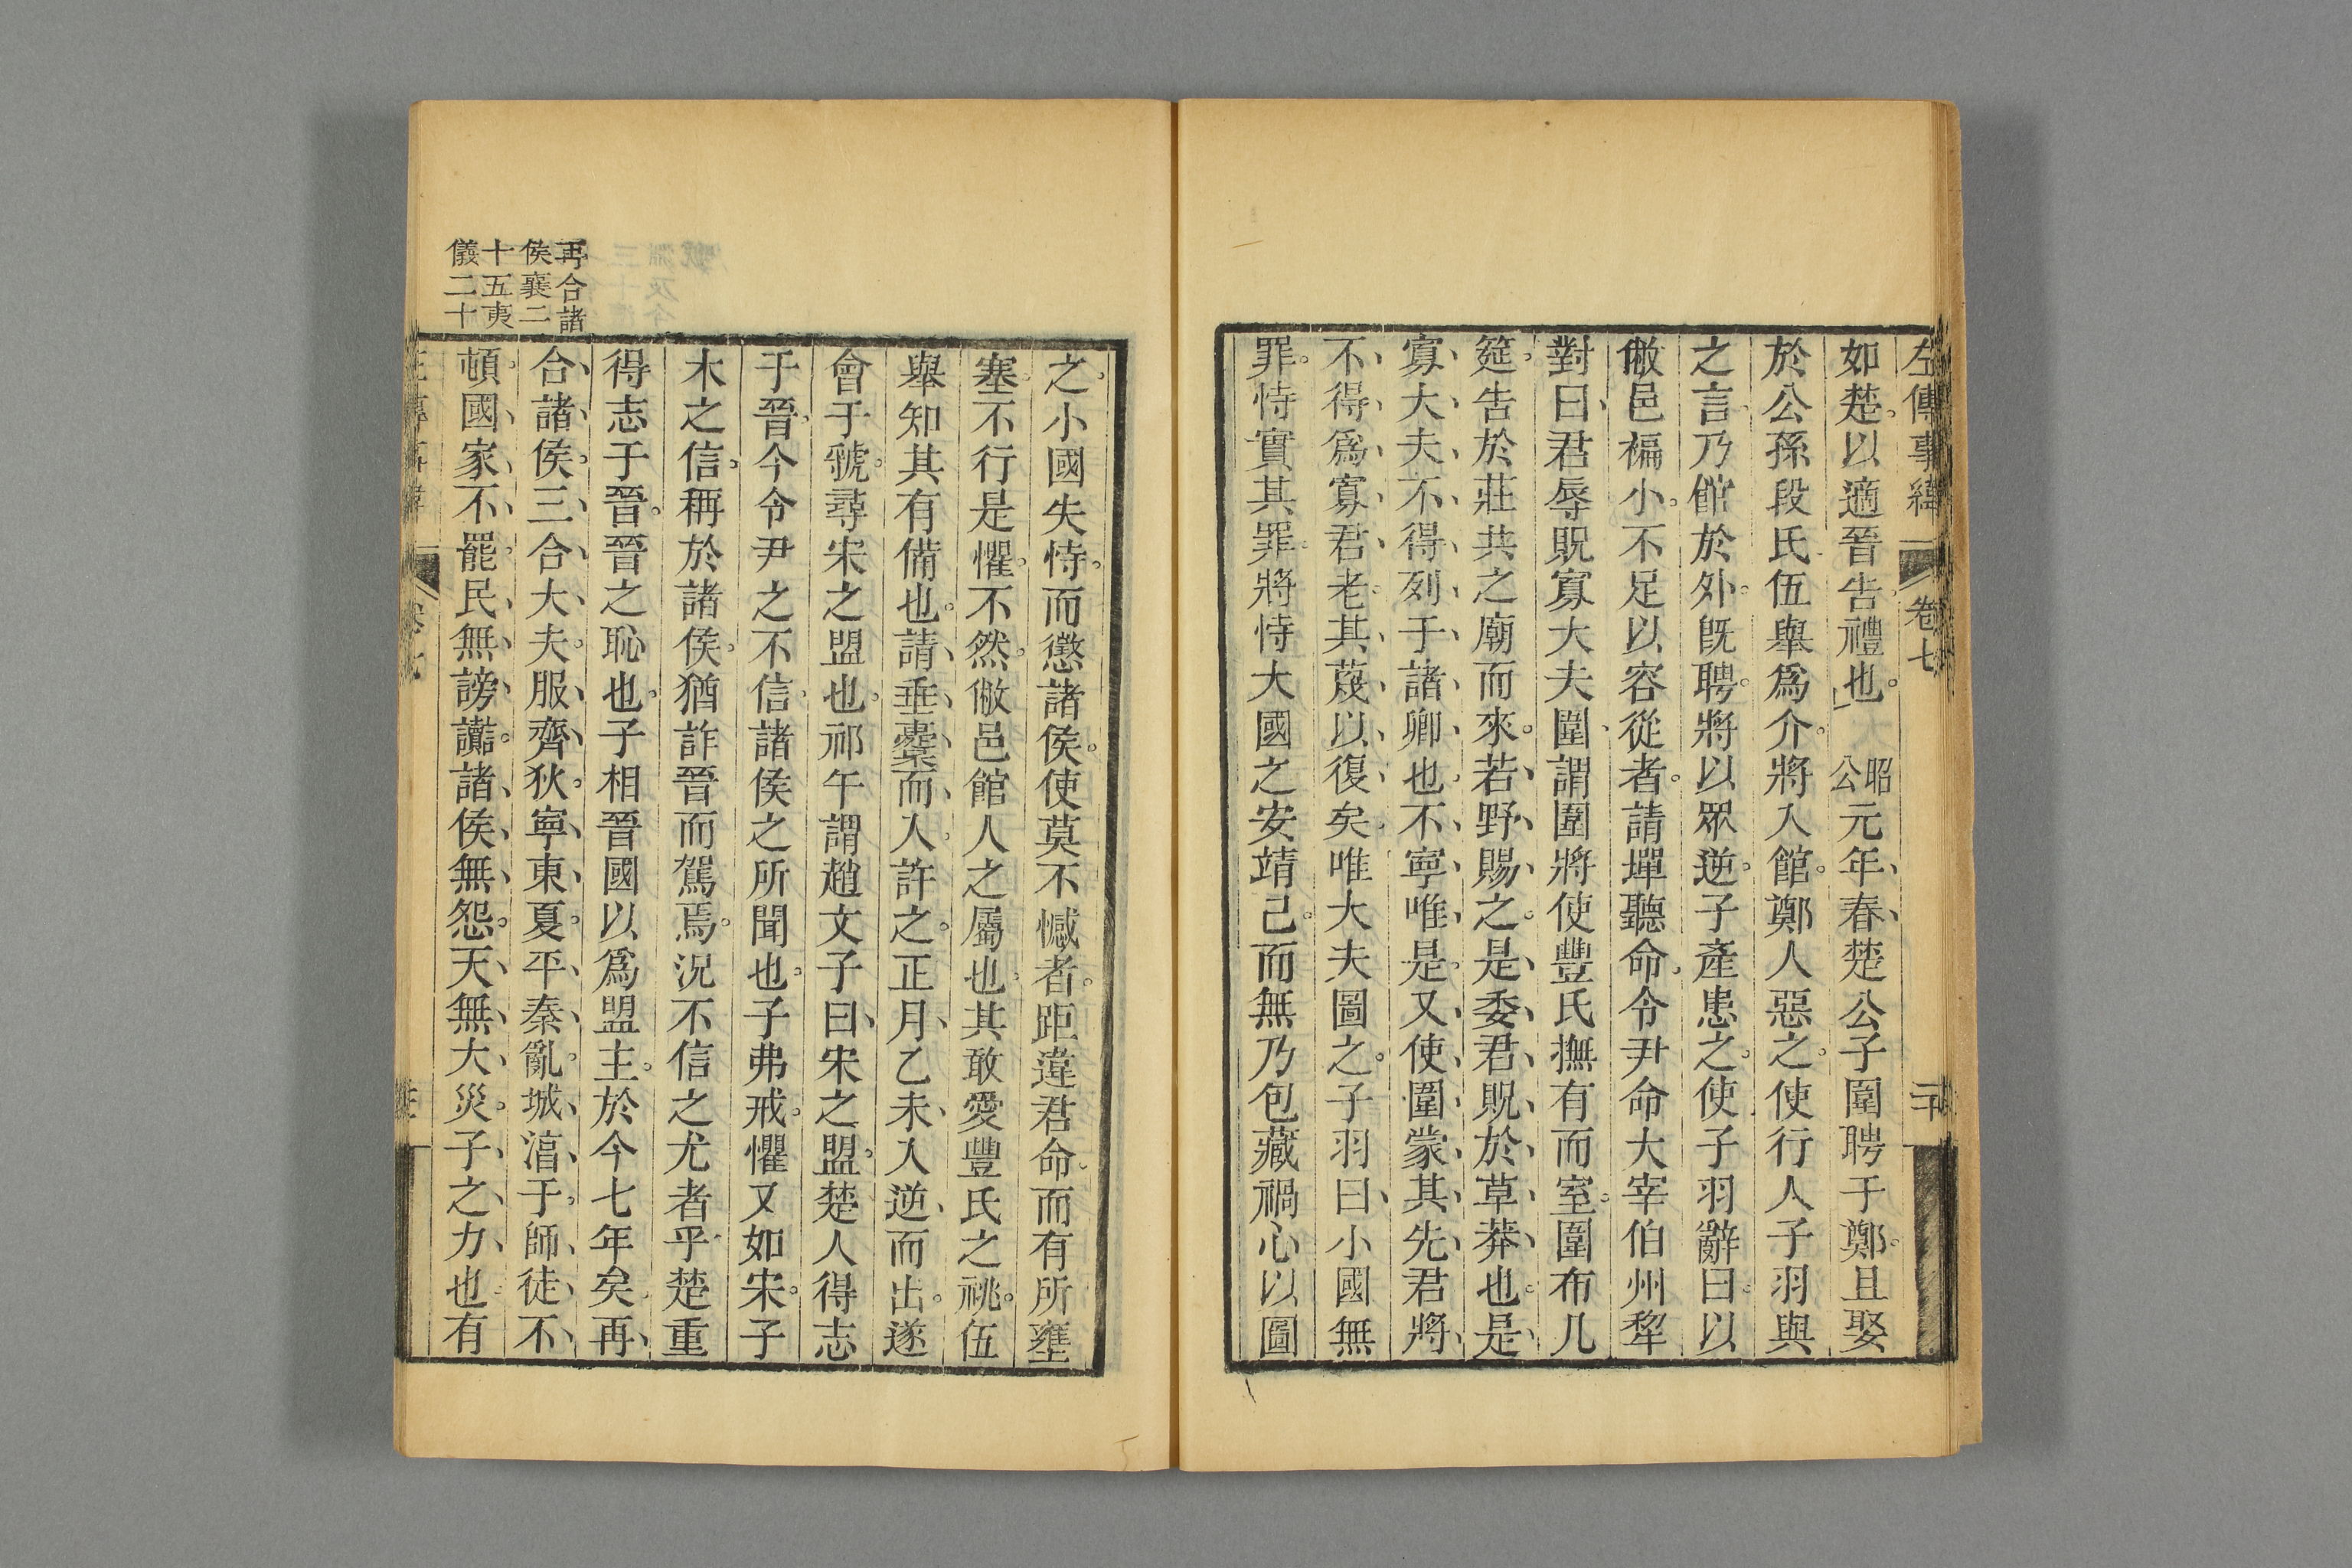 左傳事緯
卷七
二十
如楚以適晉告禮也昭公元年春楚公子圍聘于鄭且娶
於公孫段氏伍舉爲介將入館鄭人惡之使行人子羽與
之言乃館於外旣聘將以眾逆子產患之使子羽辭曰以
敝邑褊小不足以容從者請墠聽命令尹命大宰伯州犂
對曰君辱貺寡大夫圍謂圍將使豐氏撫有而室圍布几
筵告於莊共之廟而來若野賜之是委君貺於草莽也是
寡大夫不得列于諸卿也不寧唯是又使圍蒙其先君將
不得爲寡君老其蔑以復矣唯大夫圖之子羽曰小國無
罪恃實其罪將恃大國之安靖己而無乃包藏禍心以圖
之小國失恃而懲諸侯使莫不憾者距違君命而有所壅
塞不行是懼不然敝邑館人之屬也其敢愛豐氏之祧伍
舉知其有備也請垂櫜而入許之正月乙未入逆而出遂
會于虢尋宋之盟也祁午謂趙文子曰宋之盟楚人得志
于晉今令尹之不信諸侯之所聞也子弗戒懼又如宋子
木之信稱於諸侯猶詐晉而駕焉況不信之尤者乎楚重
得志于晉晉之恥也子相晉國以爲盟主於今七年矣再
合諸侯三合大夫服齊狄寧東夏平秦亂城淯于師徒不
頓國家不罷民無謗讟諸侯無怨天無大災子之力也有
再合諸
侯襄二
十五夷
儀二十